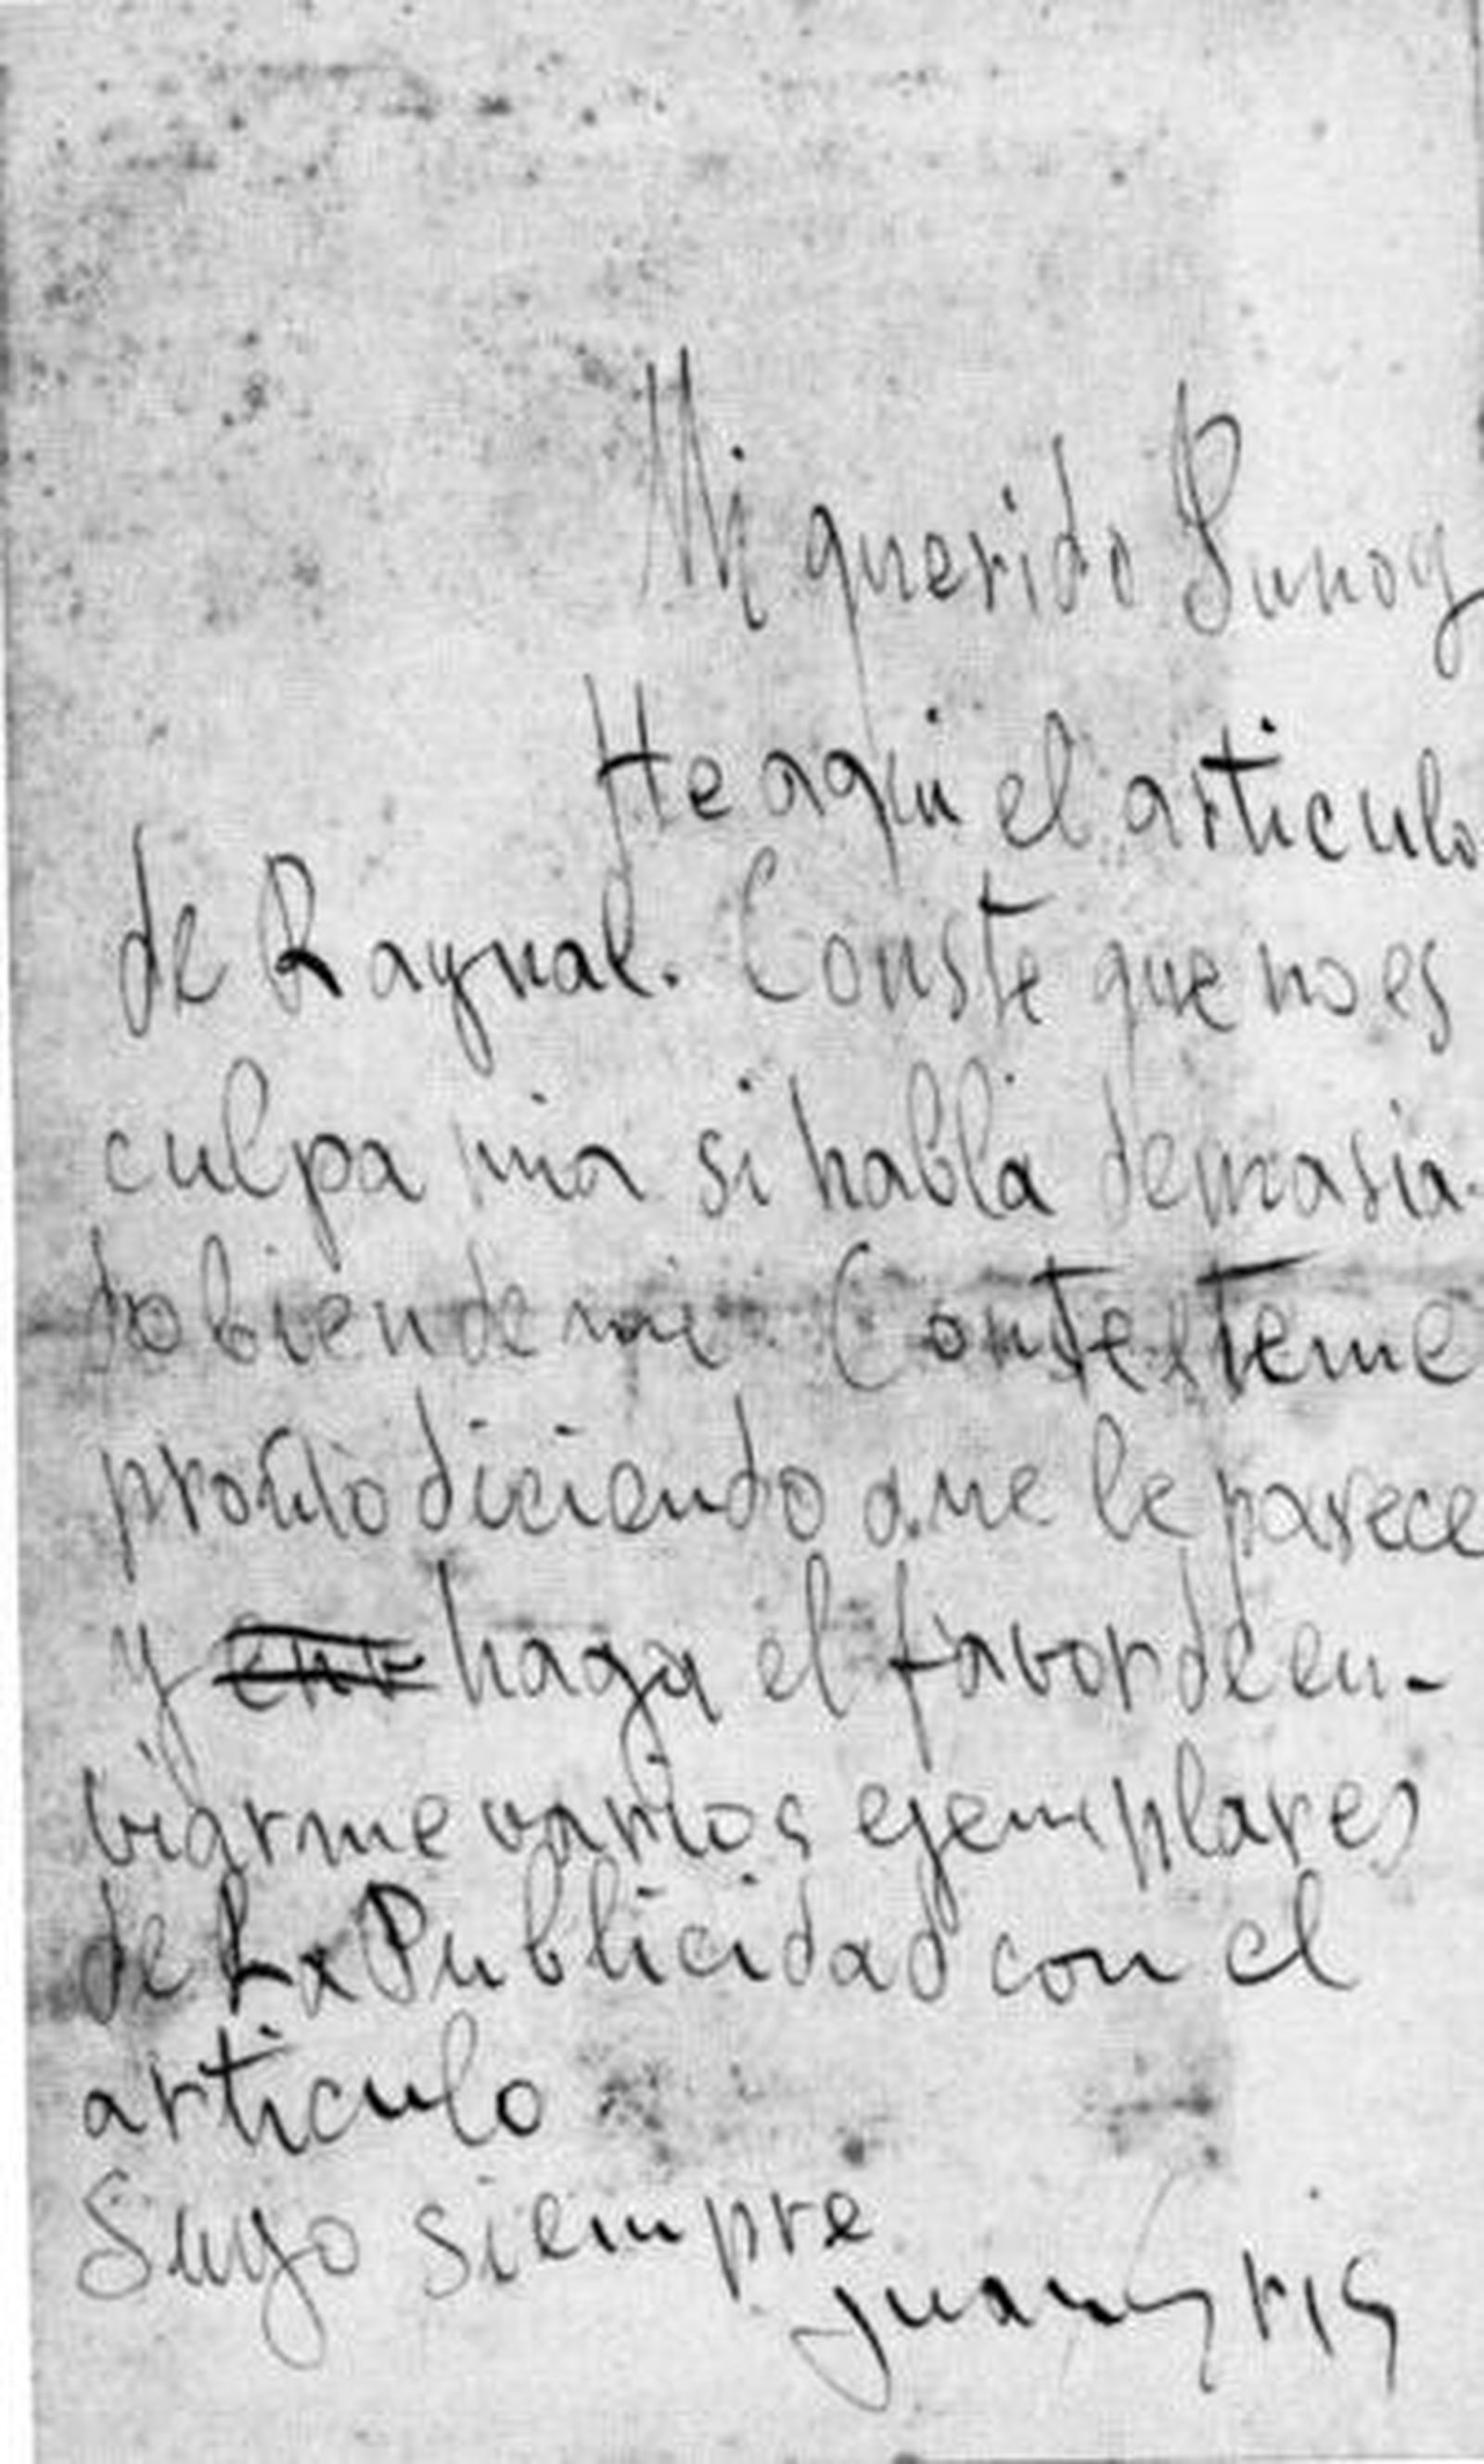 Mi querido Junoy
He aqui el articulo
de Raynal. Conste que no es
culpa mia si habla demasia-
do bien de mi Contesteme
pronto diciendo que le parece
y haga el favor de en-
viarme varios ejemplares
de La Publicidad con el
articulo
Suyo siempre
Juan Gris